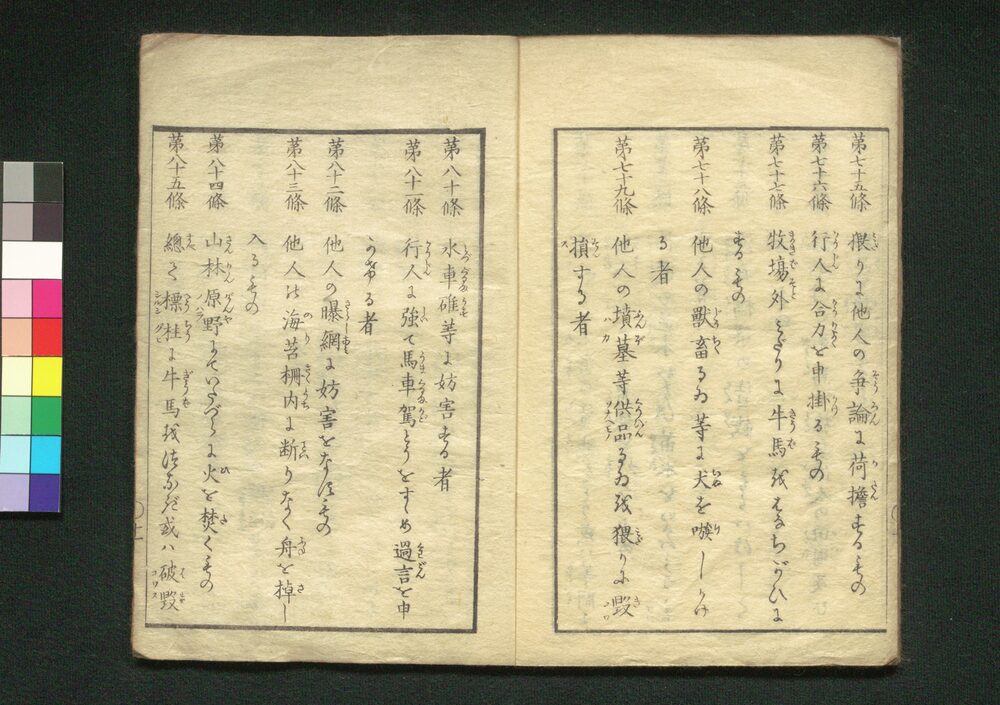 第七十五條　猥りに他人の争論に荷擔する もの
第七十六條　行人に合力を申掛る もの
第七十七條　牧塲外 みだりに牛馬をはなちがひに
する もの
第七十八條　他人の獣畜るゐ等に犬を嗾しかけ
る者
第七十九條　他人の墳墓等供品るゐを猥りに毀
損する者
第八十條　水車碓等に妨害する者
第八十一條　行人に強て馬車駕とうをすゝめ過言を申
かける者
第八十二條　他人の曝網に妨害をなす もの
第八十三條　他人の海苔柵内に断りなく舟を棹し
入る もの
第八十四條　山林原野にていたづらに火を焚く もの
第八十五條　總て標柱に牛馬をつなぎ或ハ破毀